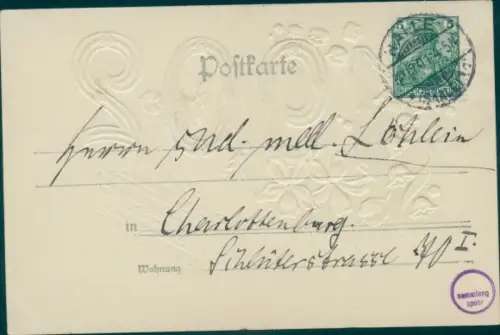 Postkarte
HALLE
Herrn stud. med. Löhlein
in Charlottenburg.
Wohnung Schlüterstrasse 70 I.
sammlung
spohr